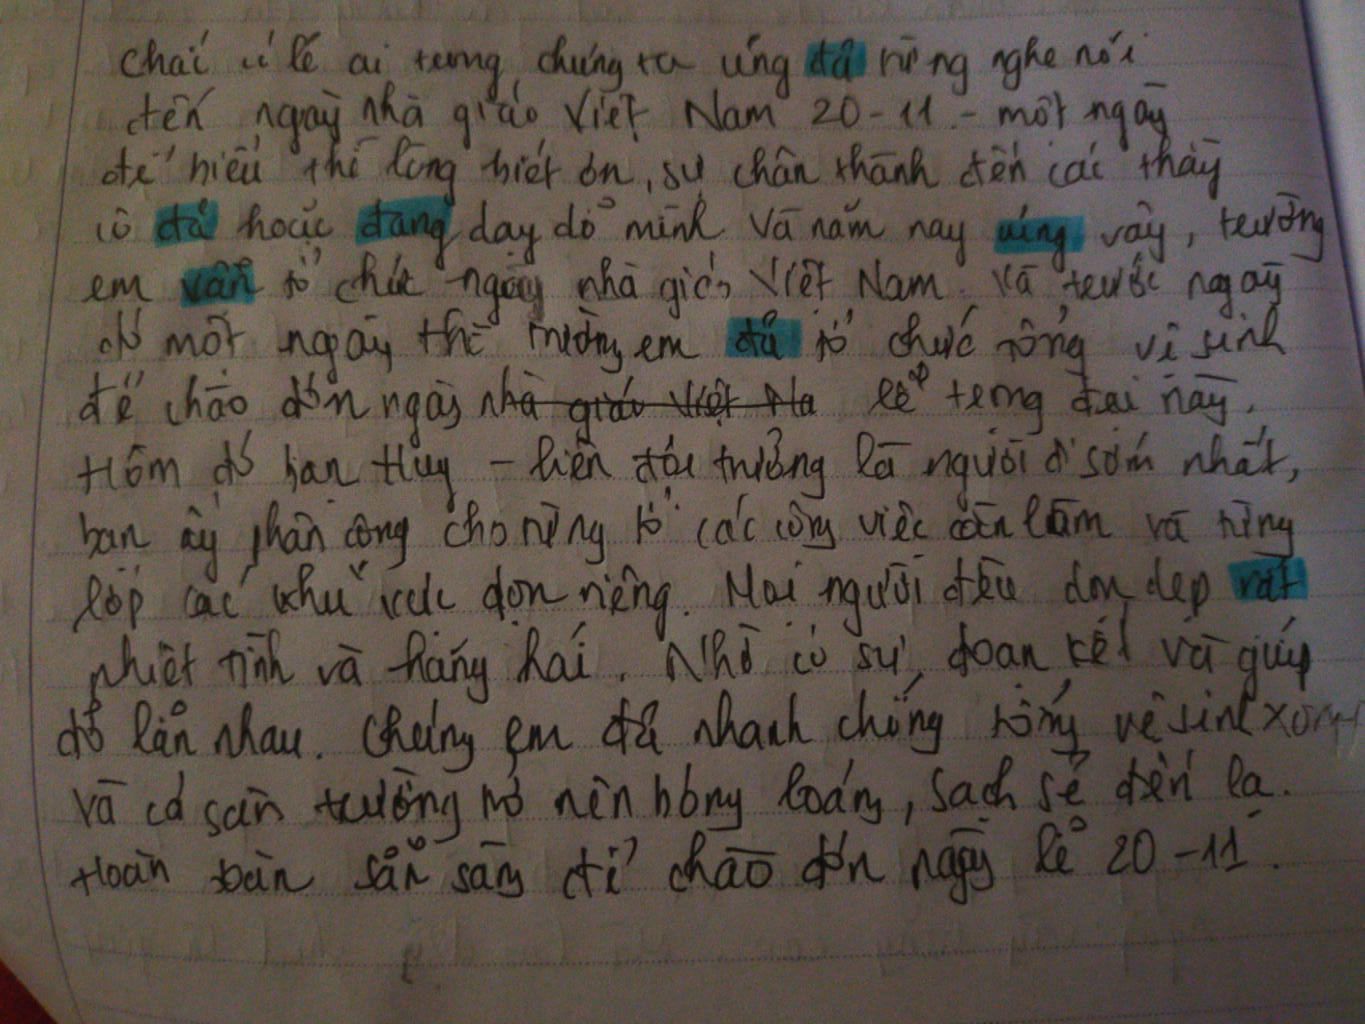 Chắc có lẽ ai trong chúng ta cũng đã từng nghe nói
đến ngày nhà giáo Việt Nam 20-11 - một ngày
để biểu thị lòng biết ơn, sự chân thành đến các thầy
cô đã hoặc đang dạy dỗ mình và năm nay cũng vậy, trường
em vẫn tổ chức ngày nhà giáo Việt Nam. Và trước ngày
đó một ngày thì trường em đã tổ chức tổng vệ sinh
để chào đón ngày nhà giáo Việt Na lễ trọng đại này.
Hôm đó bạn Huy - liên đội trưởng là người đi sớm nhất,
bạn ấy phân công cho từng tổ các công việc cần làm và từng
lớp các khu vực dọn riêng. Mọi người đều dọn dẹp rất
nhiệt tình và hăng hái. Nhờ có sự đoàn kết và giúp
đỡ lẫn nhau. Chúng em đã nhanh chóng tổng vệ sinh xong
và cả sân trường trở nên bóng loáng, sạch sẽ đến lạ.
Hoàn toàn sẵn sàng để chào đón ngày lễ 20-11.